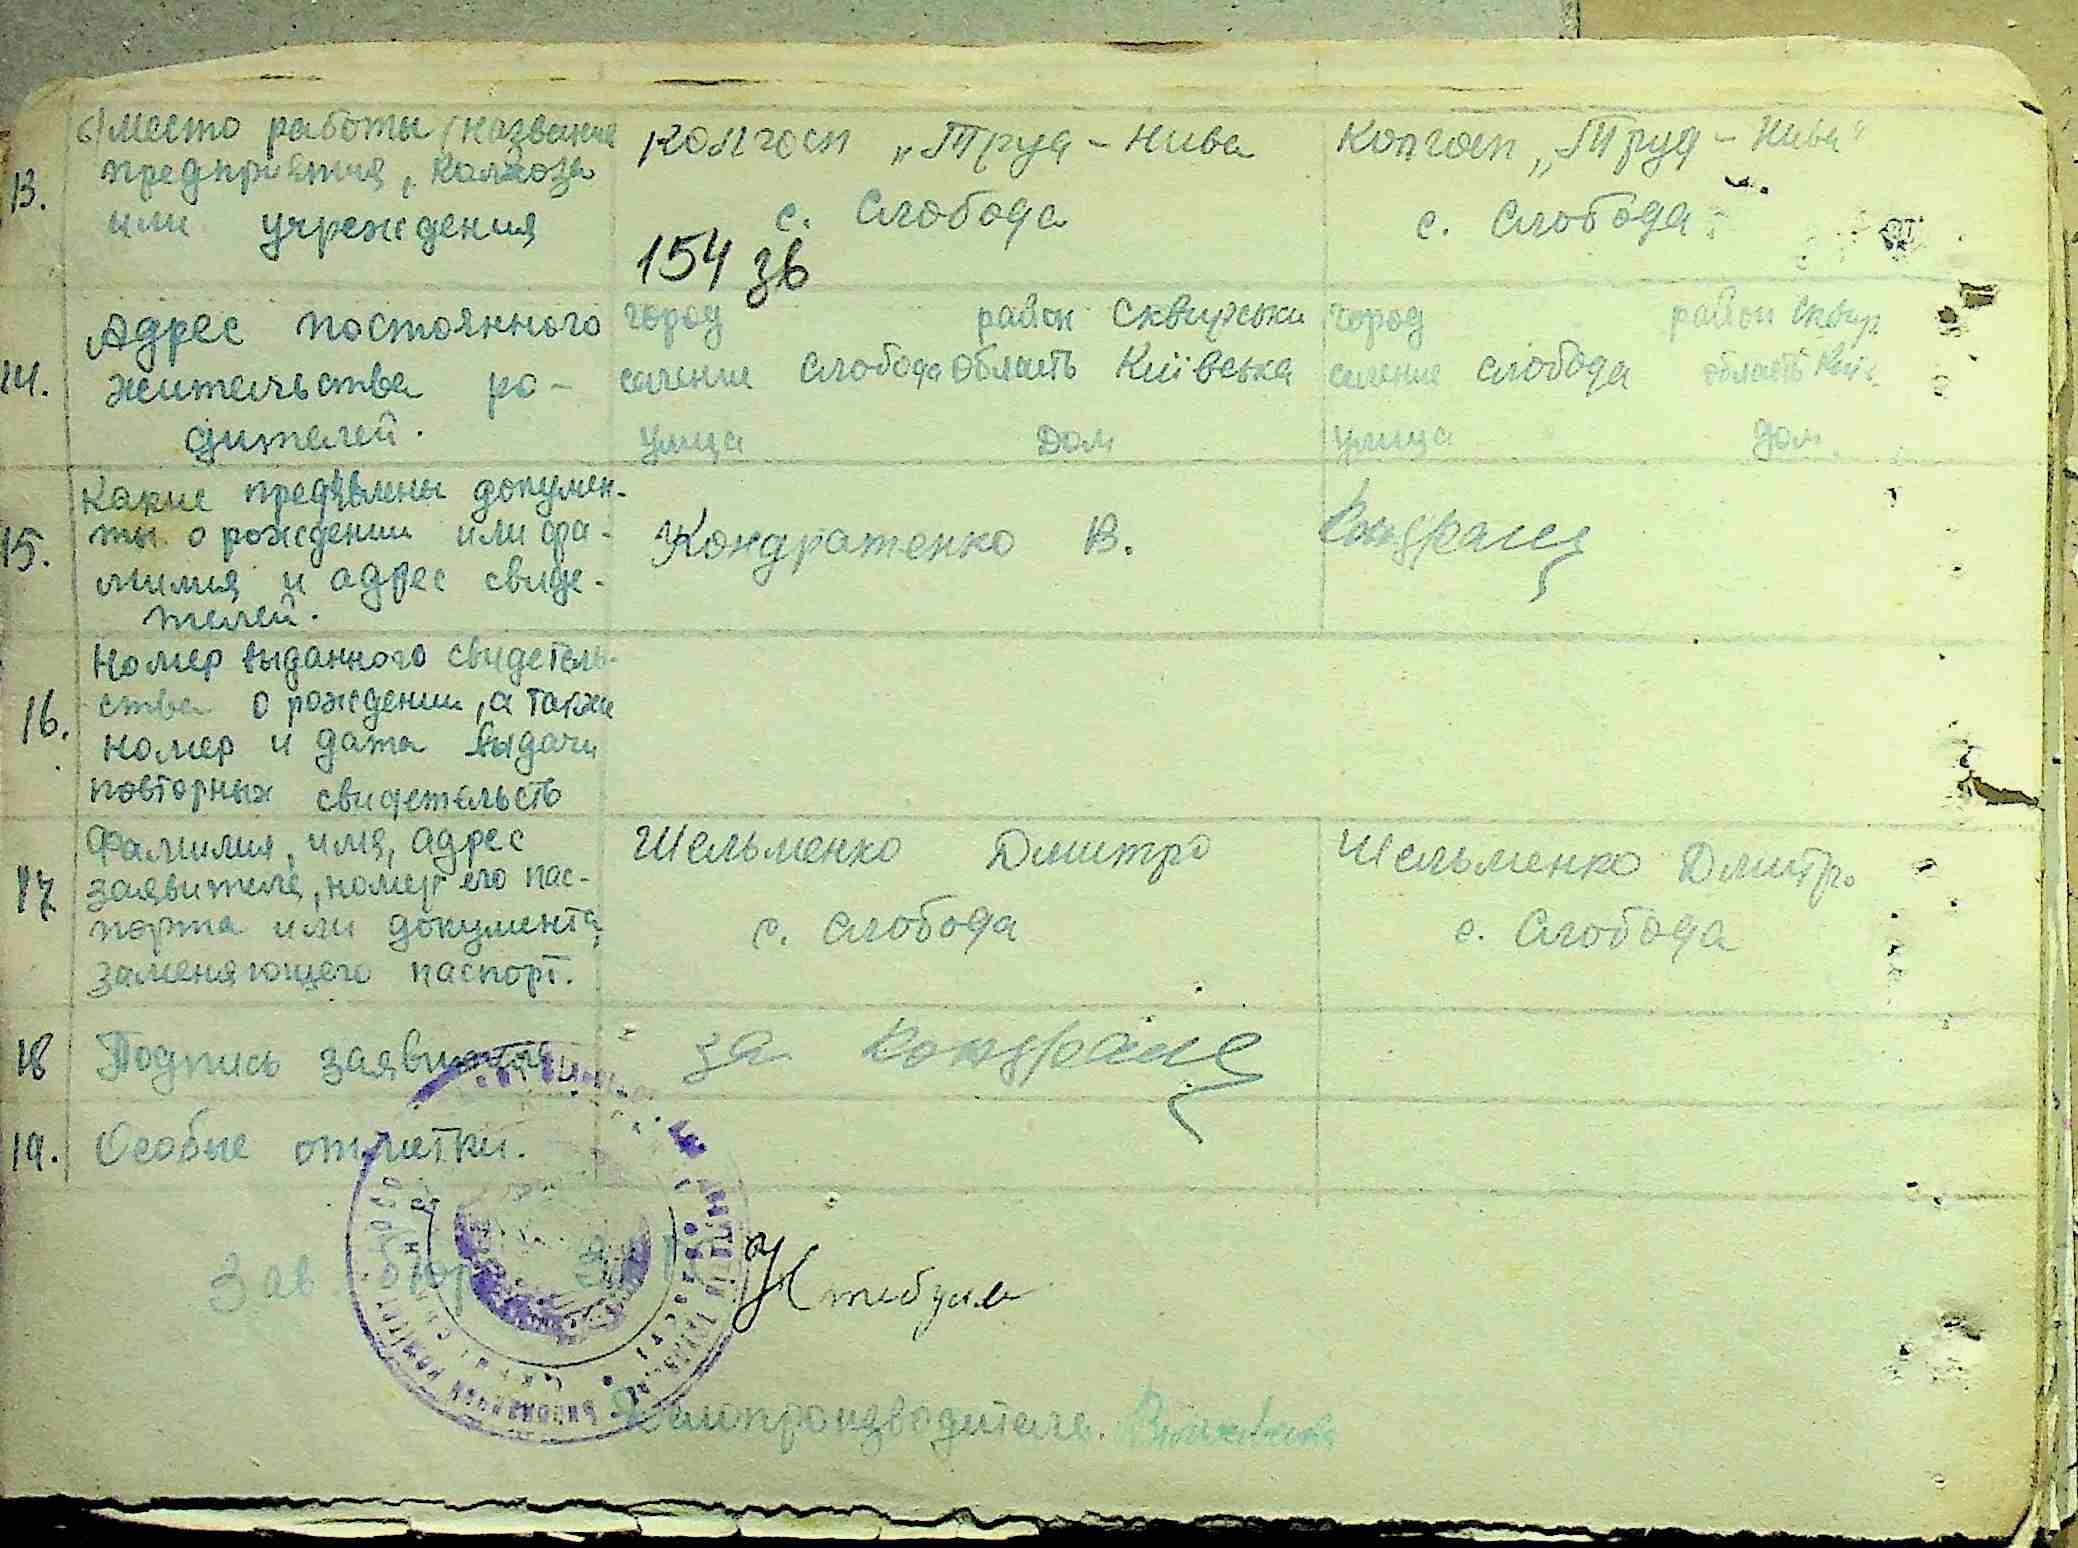 13. б) место работы (название Колгосп „Труд - Нива Колгосп „Труд - Нива"
предприятия, колхоза
или учреждения с. Слобода с. Слобода
154 зв
14. Адрес постоянного город район Сквирськи город район Сквир
жительства ро- селение Слобода область Київська селение Слобода область Київ
дителей. улица Дом улица Дом
15. Какие предявлены докумен-
ты о рождении или фа- Кондратенко В.
милия и адрес свиде-
телей.
16. Номер выданного свидетель-
ства о рождении, а также
номер и дата выдачи
повторных свидетельств
17. Фамилия, имя, адрес Шельменко Дмитро Шельменко Дмитро
заявителя, номер его пас-
порта или документа, с. Слобода с. Слобода
заменяющего паспорт.
18 Подпись заявителя за
19. Особые отметки.
Зав. бюро
Делопроизводитель.